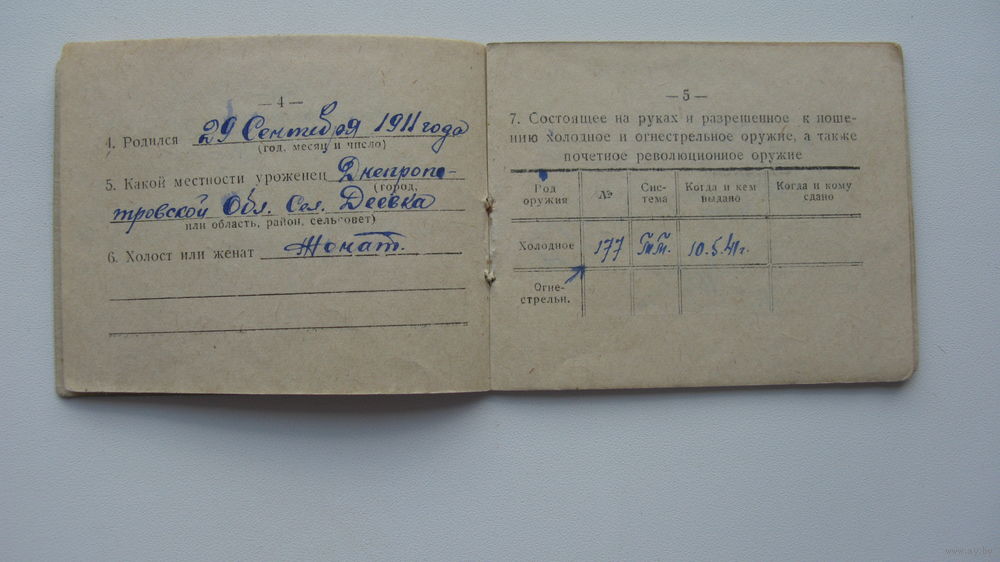 — 4 —
4. Родился 29 Сентября 1911 года
(год, месяц и число)
5. Какой местности уроженец Днепропе-
(город,
тровской Обл. Сел. Деевка
или область, район, сельсовет)
6. Холост или женат Жонат.
— 5 —
7. Состоящее на руках и разрешенное к ноше-
нию холодное и огнестрельное оружие, а также
почетное революционное оружие
Род оружия
№
Сис-
тема
Когда и кем
выдано
Когда и кому
сдано
Холодное 177 Т.Т. 10.5.41г.
Огне-
стрельн.
www.ay.by